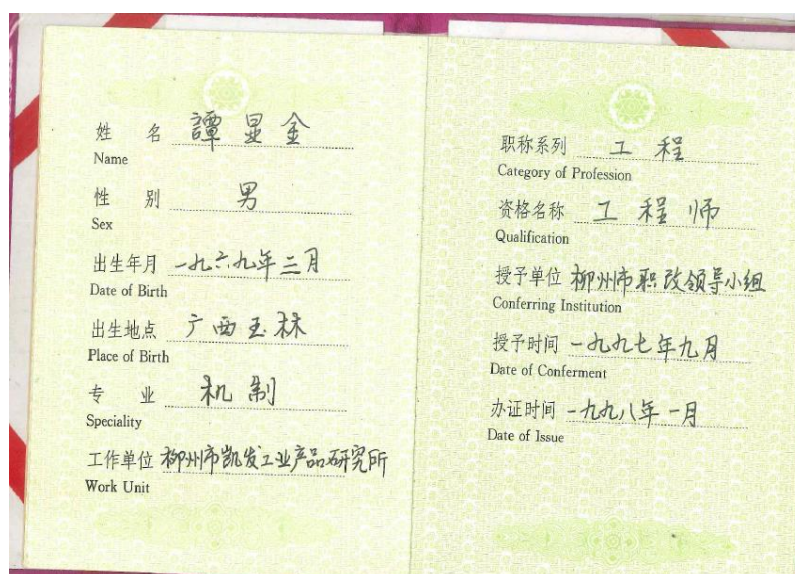 姓 名 譚显金
Name
性 别 男
Sex
出生年月 一九六九年二月
Date of Birth
出生地点 广西玉林
Place of Birth
专 业 机制
Speciality
工作单位 柳州市凯发工业产品研究所
Work Unit
职称系列 工程
Category of Profession
资格名称 工程师
Qualification
授予单位 柳州市职改领导小组
Conferring Institution
授予时间 一九九七年九月
Date of Conferment
办证时间 一九九八年一月
Date of Issue